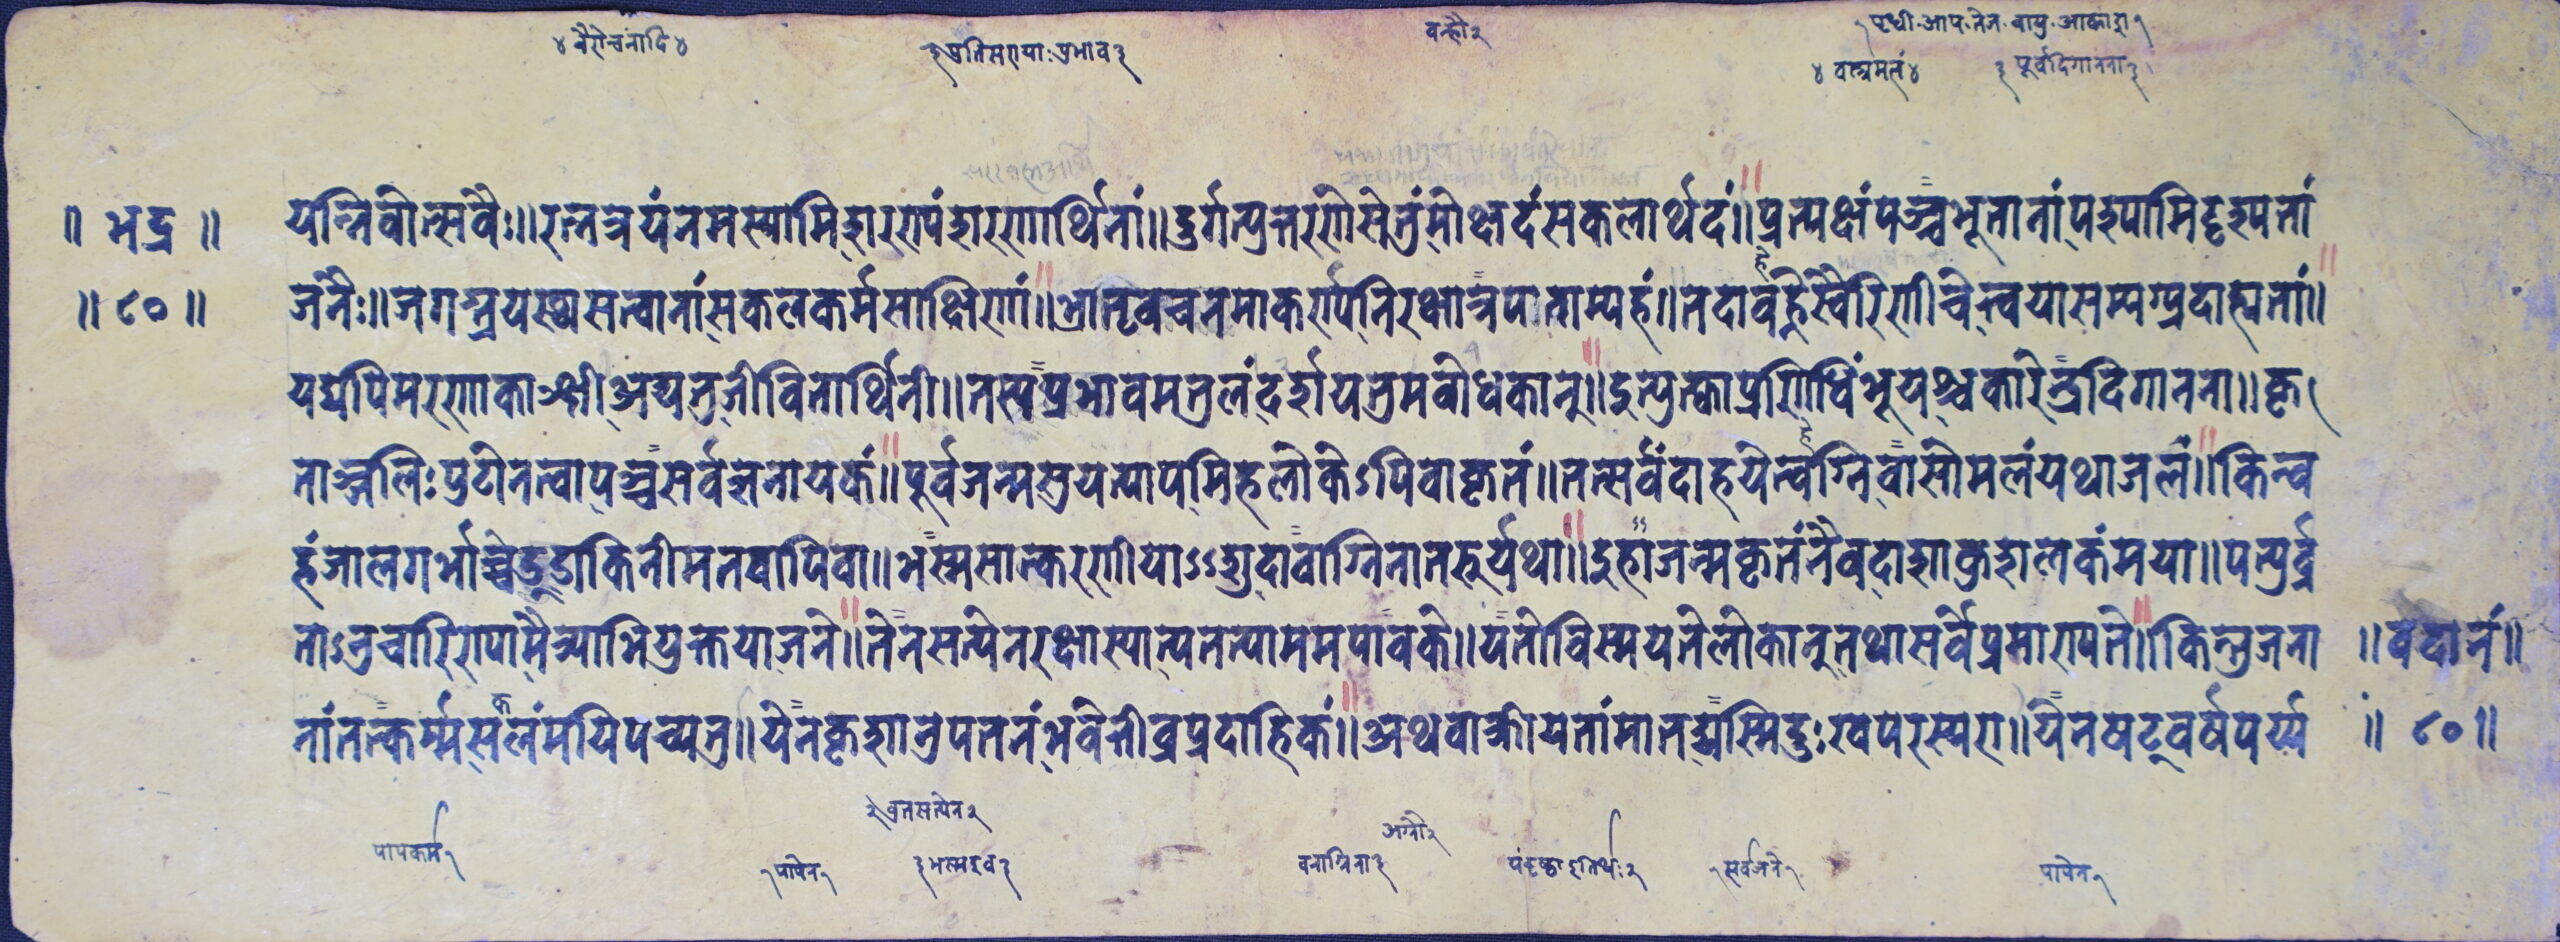 ४ वैरोचनादि ४
३ प्रतिसरायाः प्रभाव ३
वह्नौ २
१ पृथी · आप · तेज · वायु · आकाश १
४ वत्समलं ४
३ पूर्वादिगानना ३
॥ भद्र ॥ यन्निवोत्सवैः ॥ रत्नत्रयं नमस्यामि शरणं शरणार्थिनां ॥ दुर्गत्युत्तरणे सेतुं मोक्षदं सकलार्थदं ॥ प्रत्यक्षं पञ्चभूतानां पश्यामि दृश्यतां
॥ ८० ॥ जनैः ॥ जगत्त्रयस्थसत्वानां सकलकर्मसाक्षिणां ॥ भ्रातृवचनमाकर्ण्य निरक्षात्र पताम्यहं ॥ तदा वह्ने स्वैरिणी चेत्त्वया सम्यग्प्रदाह्यतां ॥
यद्यपि मरणाकाङ्क्षी अद्य तु जीवितार्थिनी ॥ तस्य प्रभावमतुलं दर्शय तु मवोधकान् ॥ इत्युक्त्वा प्रणिधिं भूयश्चकारेन्द्रदिगानना ॥ कृ
ताञ्जलिः पुटो नत्वा पञ्चसर्वज्ञनायकं ॥ पूर्वजन्मसु यत्पापमिह लोकेऽपि वा कृतं ॥ तत्सर्वं दाहयेत्त्वग्नि वासोमलं यथा जलं ॥ किन्त्व
हं जालगर्भा च्चेड्डाकिनीमतवापि वा ॥ भस्मसात्करणीयोऽऽशु दावाग्निना तरुर्यथा ॥ इहा जन्मकृतं नैव दाशाकुशलकं मया ॥ पत्युर्व्र
तोऽनुचारिण्या मैत्र्याभियुक्तया जने ॥ तेन सत्येन रक्षा स्यात्पतत्या मम पावके ॥ यतो विस्मयते लोकान् तथा सर्वे प्रमाण्यते ॥ किन्तु जना ॥ वदानं ॥
नां तत्कर्म्म सकलं मयि पच्यतु ॥ येन कृशानुपतनं भवेत्तीव्रप्रदाहिकं ॥ अथवा क्रीयतां मातद्यस्मि दुःखपरस्परा ॥ येन षट्वर्षपर्य्य ॥ ८० ॥
पापकर्म १
२ व्रतसत्येन २
१ पापेन १
३ भस्मइव ३
अग्नौ २
वनाग्निना ३
१ सर्वजने १
पापेन १